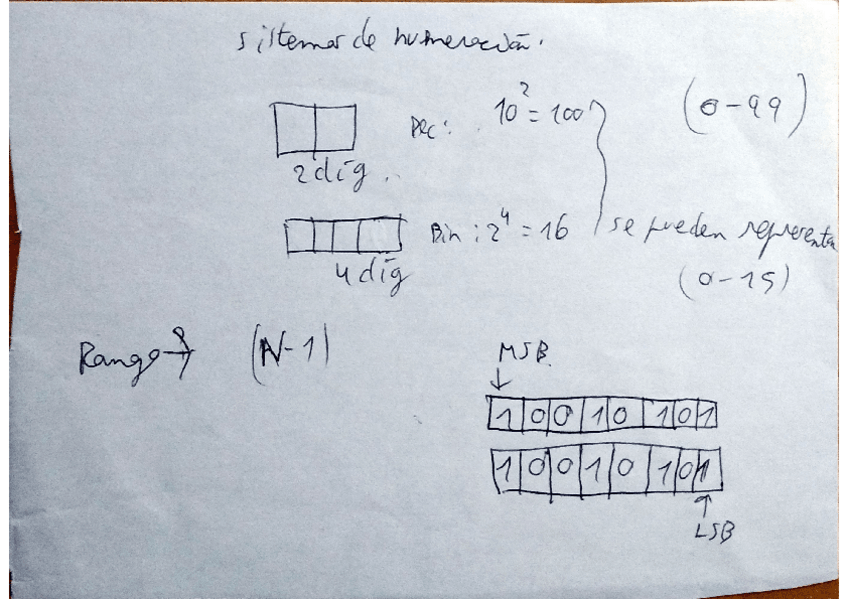 sistemas de numeración.
Dec: 10² = 100 (0-99)
2 díg.
Bin: 2⁴ = 16 se pueden representa
4 díg (0-15)
Rango → (N-1)
MSB
1 0 0 1 0 1 0 1
1 0 0 1 0 1 0 1
LSB